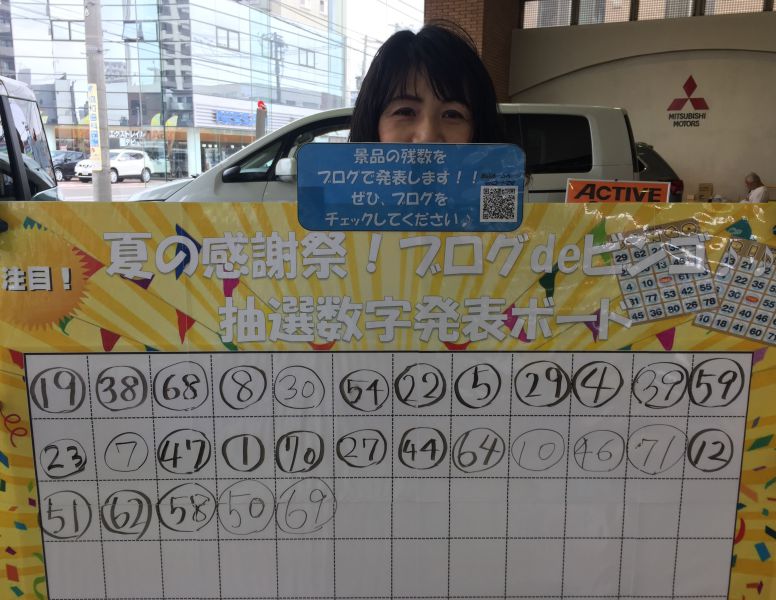 エクストレイル
デビュー
MITSUBISHI
MOTORS
景品の残数を
ブログで発表します！！
ぜひ、ブログを
チェックしてください♪
ACTIVE
注目！
夏の感謝祭！ブログdeビンゴ！！
抽選数字発表ボード
19 38 68 8 30 54 22 5 29 4 39 59
23 7 47 1 70 27 44 64 10 46 71 12
51 62 58 50 69